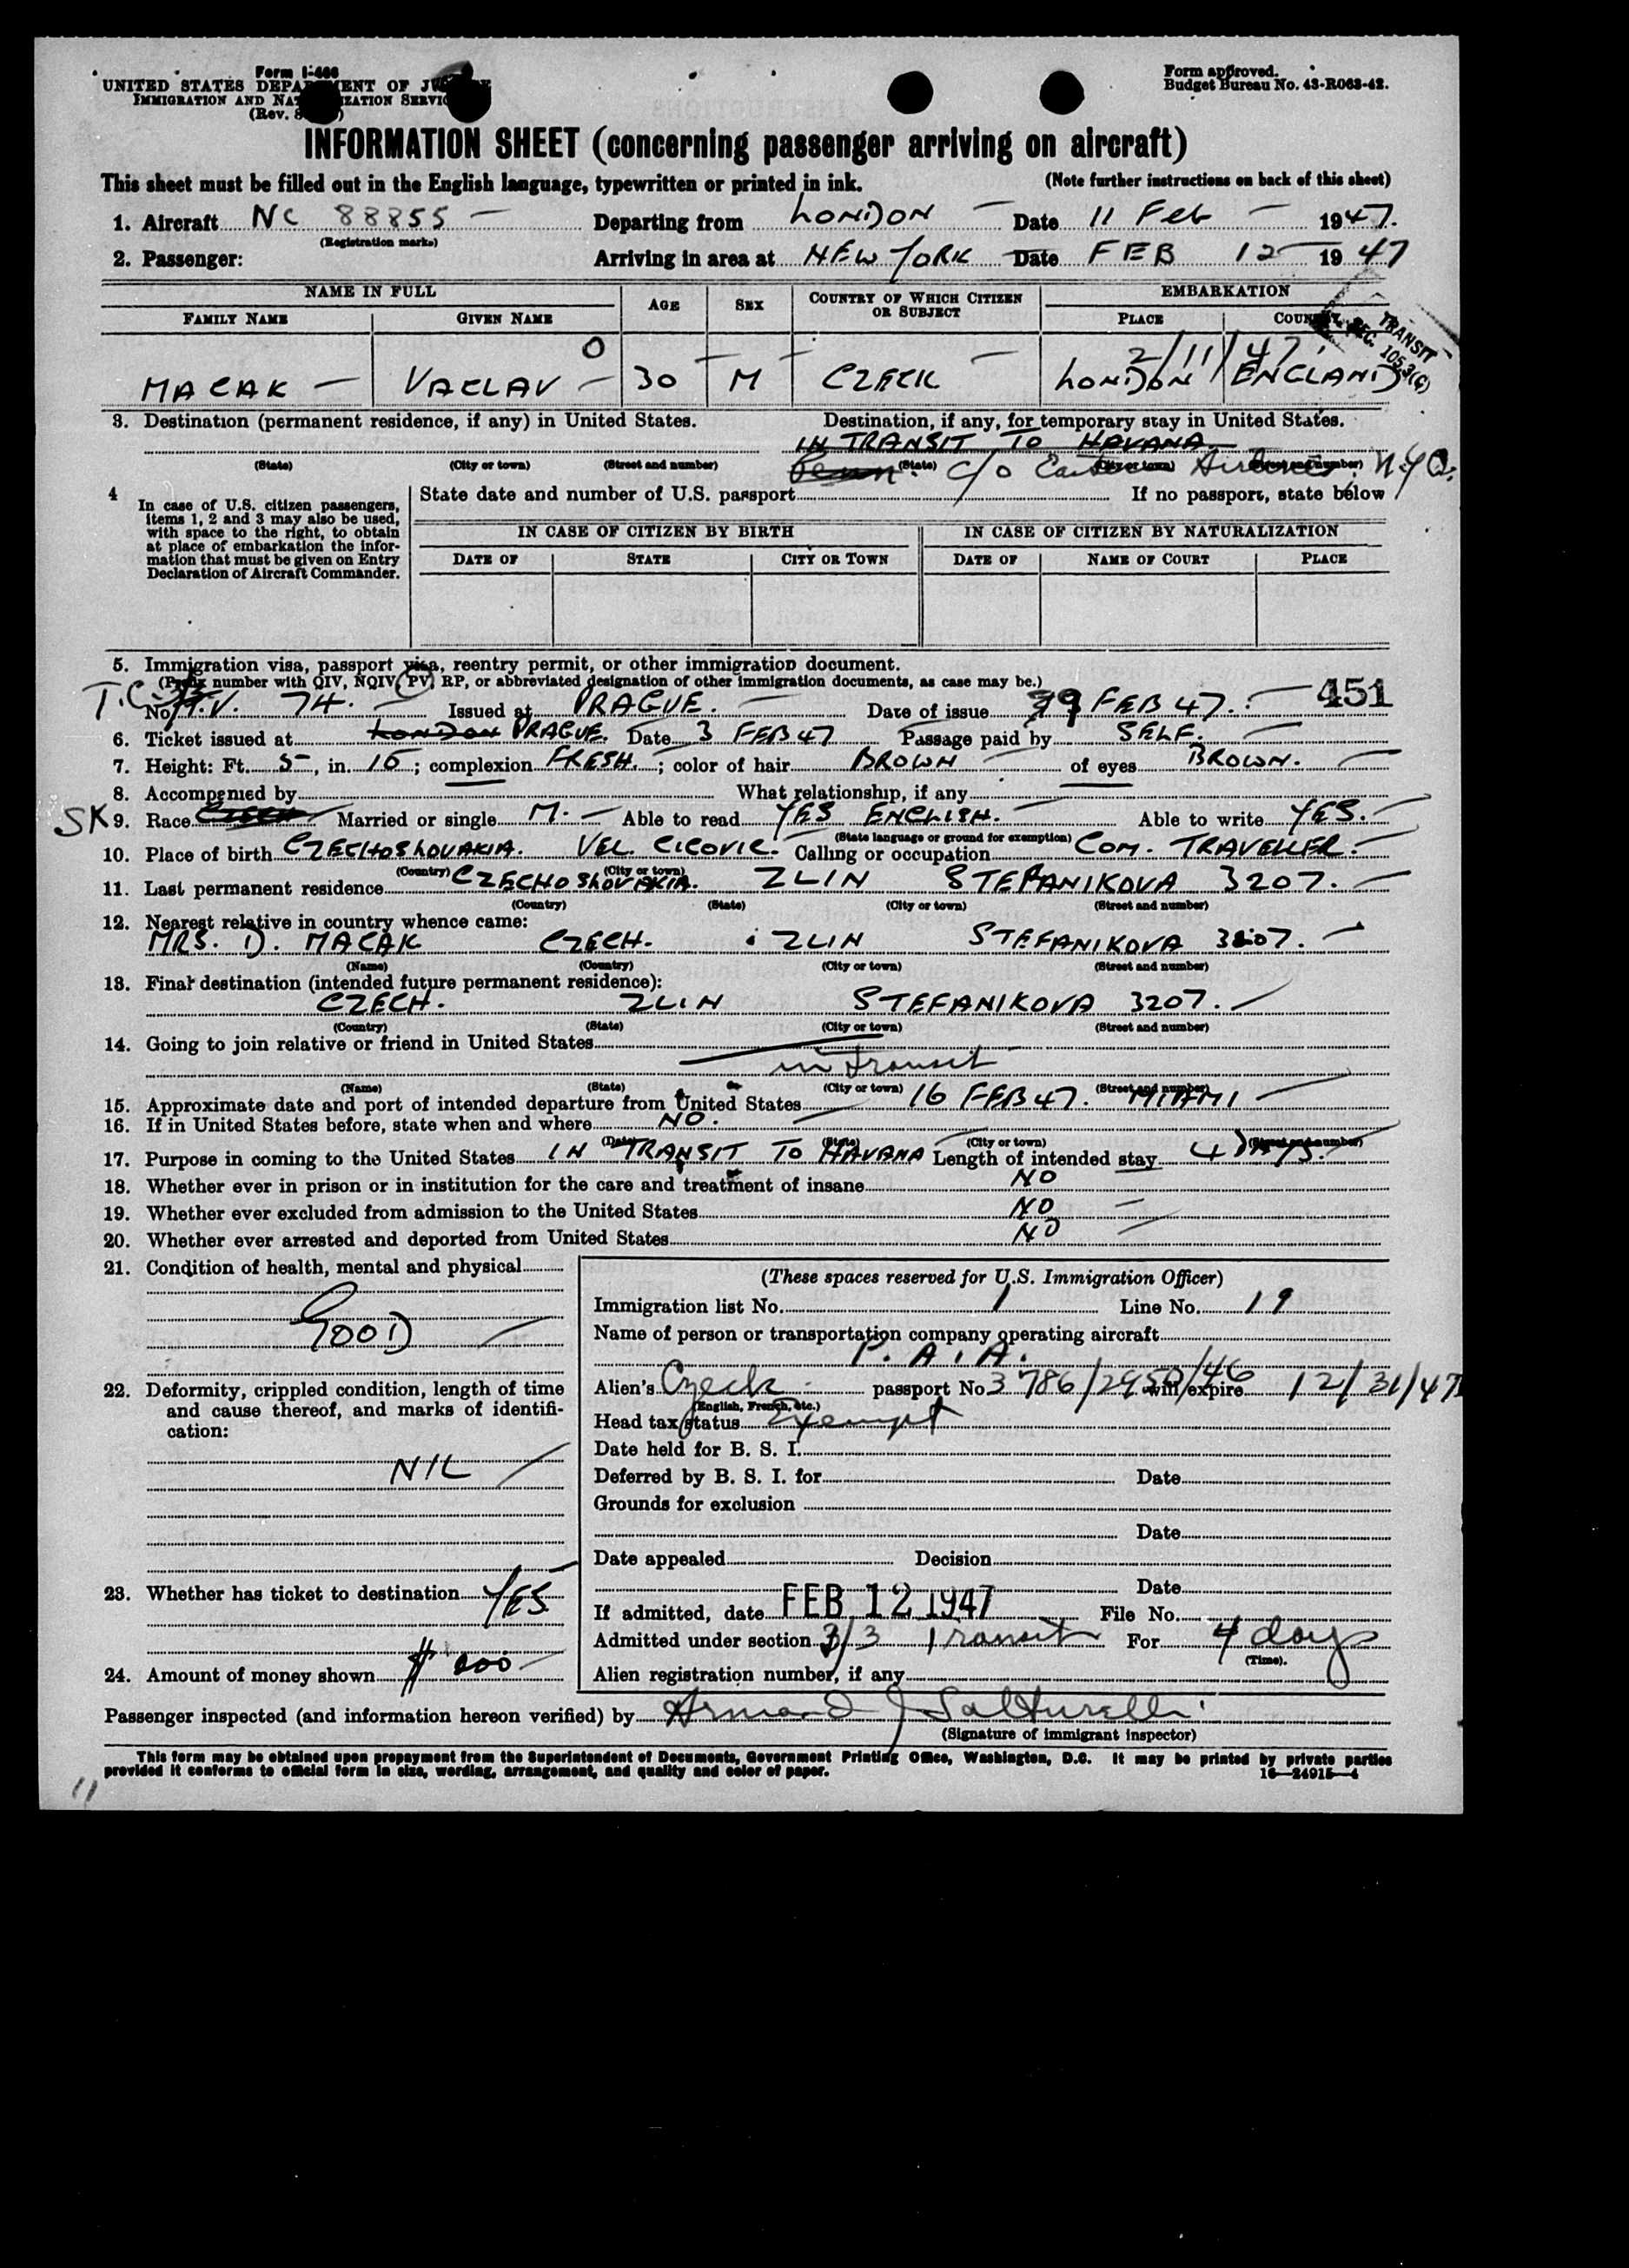 Form I-466
UNITED STATES DEPARTMENT OF JUSTICE
IMMIGRATION AND NATURALIZATION SERVICE
(Rev.
Form approved.
Budget Bureau No. 43-R063-42.
INFORMATION SHEET (concerning passenger arriving on aircraft)
This sheet must be filled out in the English language, typewritten or printed in ink. (Note further instructions on back of this sheet)
1. Aircraft NC 88855 — Departing from LONDON — Date 11 Feb — 1947.
(Registration marks)
2. Passenger: Arriving in area at NEW YORK — Date FEB 12 1947
NAME IN FULL AGE SEX COUNTRY OF WHICH CITIZEN OR SUBJECT EMBARKATION
FAMILY NAME GIVEN NAME PLACE COUNTRY
TRANSIT
SEC. 105.3(G)
0 2/11/47
MACAK — VACLAV — 30 M CZECK LONDON ENGLAND
3. Destination (permanent residence, if any) in United States. Destination, if any, for temporary stay in United States.
IN TRANSIT TO HAVANA
(State) (City or town) (Street and number) (State) c/o Eastern Airlines (City or town) (Street and number) N.Y.C.
4 In case of U.S. citizen passengers, items 1, 2 and 3 may also be used, with space to the right, to obtain at place of embarkation the information that must be given on Entry Declaration of Aircraft Commander.
State date and number of U.S. passport If no passport, state below
IN CASE OF CITIZEN BY BIRTH IN CASE OF CITIZEN BY NATURALIZATION
DATE OF STATE CITY OR TOWN DATE OF NAME OF COURT PLACE
5. Immigration visa, passport visa, reentry permit, or other immigration document.
(Prefix number with QIV, NQIV, PV, RP, or abbreviated designation of other immigration documents, as case may be.)
T.C. No. 74. — Issued at PRAGUE. — Date of issue FEB 47. — 451
6. Ticket issued at LONDON PRAGUE. Date 3 FEB 47 Passage paid by SELF. —
7. Height: Ft. 5, in. 10; complexion FRESH.; color of hair BROWN — of eyes BROWN. —
8. Accompanied by What relationship, if any
SK 9. Race CZECH Married or single M. — Able to read YES ENGLISH. — Able to write YES. —
(State language or ground for exemption)
10. Place of birth CZECHOSLOVAKIA. VEL. CICOVIC. Calling or occupation COM. TRAVELLER. —
(Country) (City or town)
11. Last permanent residence CZECHOSLOVAKIA. ZLIN STEFANIKOVA 3207. —
(Country) (State) (City or town) (Street and number)
12. Nearest relative in country whence came:
MRS. D. MACAK CZECH. ZLIN STEFANIKOVA 3207. —
(Name) (Country) (City or town) (Street and number)
13. Final destination (intended future permanent residence):
CZECH. ZLIN STEFANIKOVA 3207. —
(Country) (State) (City or town) (Street and number)
14. Going to join relative or friend in United States
in transit
(Name) (State) (City or town) (Street and number)
15. Approximate date and port of intended departure from United States 16 FEB 47. MIAMI —
16. If in United States before, state when and where NO. —
(Date) (State) (City or town) (Street and number)
17. Purpose in coming to the United States IN TRANSIT TO HAVANA Length of intended stay 4 DAYS.
18. Whether ever in prison or in institution for the care and treatment of insane NO
19. Whether ever excluded from admission to the United States NO —
20. Whether ever arrested and deported from United States NO
21. Condition of health, mental and physical
GOOD
22. Deformity, crippled condition, length of time and cause thereof, and marks of identification:
NIL
23. Whether has ticket to destination YES
24. Amount of money shown
(These spaces reserved for U.S. Immigration Officer)
Immigration list No. 1 Line No. 19
Name of person or transportation company operating aircraft
P. A. A.
Alien's Czech passport No 3786/2950/46 will expire 12/31/47
(English, French, etc.)
Head tax status Exempt
Date held for B. S. I.
Deferred by B. S. I. for Date
Grounds for exclusion
Date
Date appealed Decision
Date
If admitted, date FEB 12 1947 File No.
Admitted under section 3/3 Transit For 4 days
(Time).
Alien registration number, if any
Passenger inspected (and information hereon verified) by Armand J Salturelli
(Signature of immigrant inspector)
This form may be obtained upon prepayment from the Superintendent of Documents, Government Printing Office, Washington, D.C. It may be printed by private parties
provided it conforms to official form in size, wording, arrangement, and quality and color of paper. 16—24915-4
11